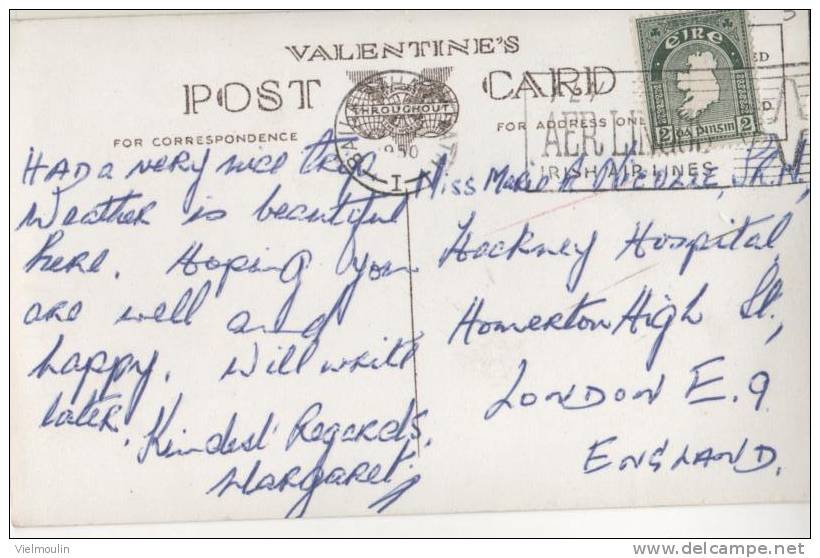 VALENTINE'S
POST CARD
THROUGHOUT
FOR CORRESPONDENCE
FOR ADDRESS ONL
EIRE
2 DA PINSIN 2
AER
IRISH AIR LINES
HAD a very nice trip
Weather is beautiful
here. Hoping you
are well and
happy. Will write
later.
Kindest Regards,
Margaret.
Miss Marie
Hackney Hospital,
Homerton High St.,
LONDON E.9
ENGLAND.
Vielmoulin
http://www.delcampe.net